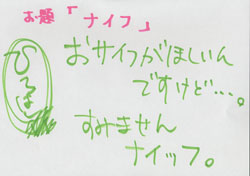 お題「ナイフ」
おサイフがほしいん
ですけど…。
すみません
ナイッフ。